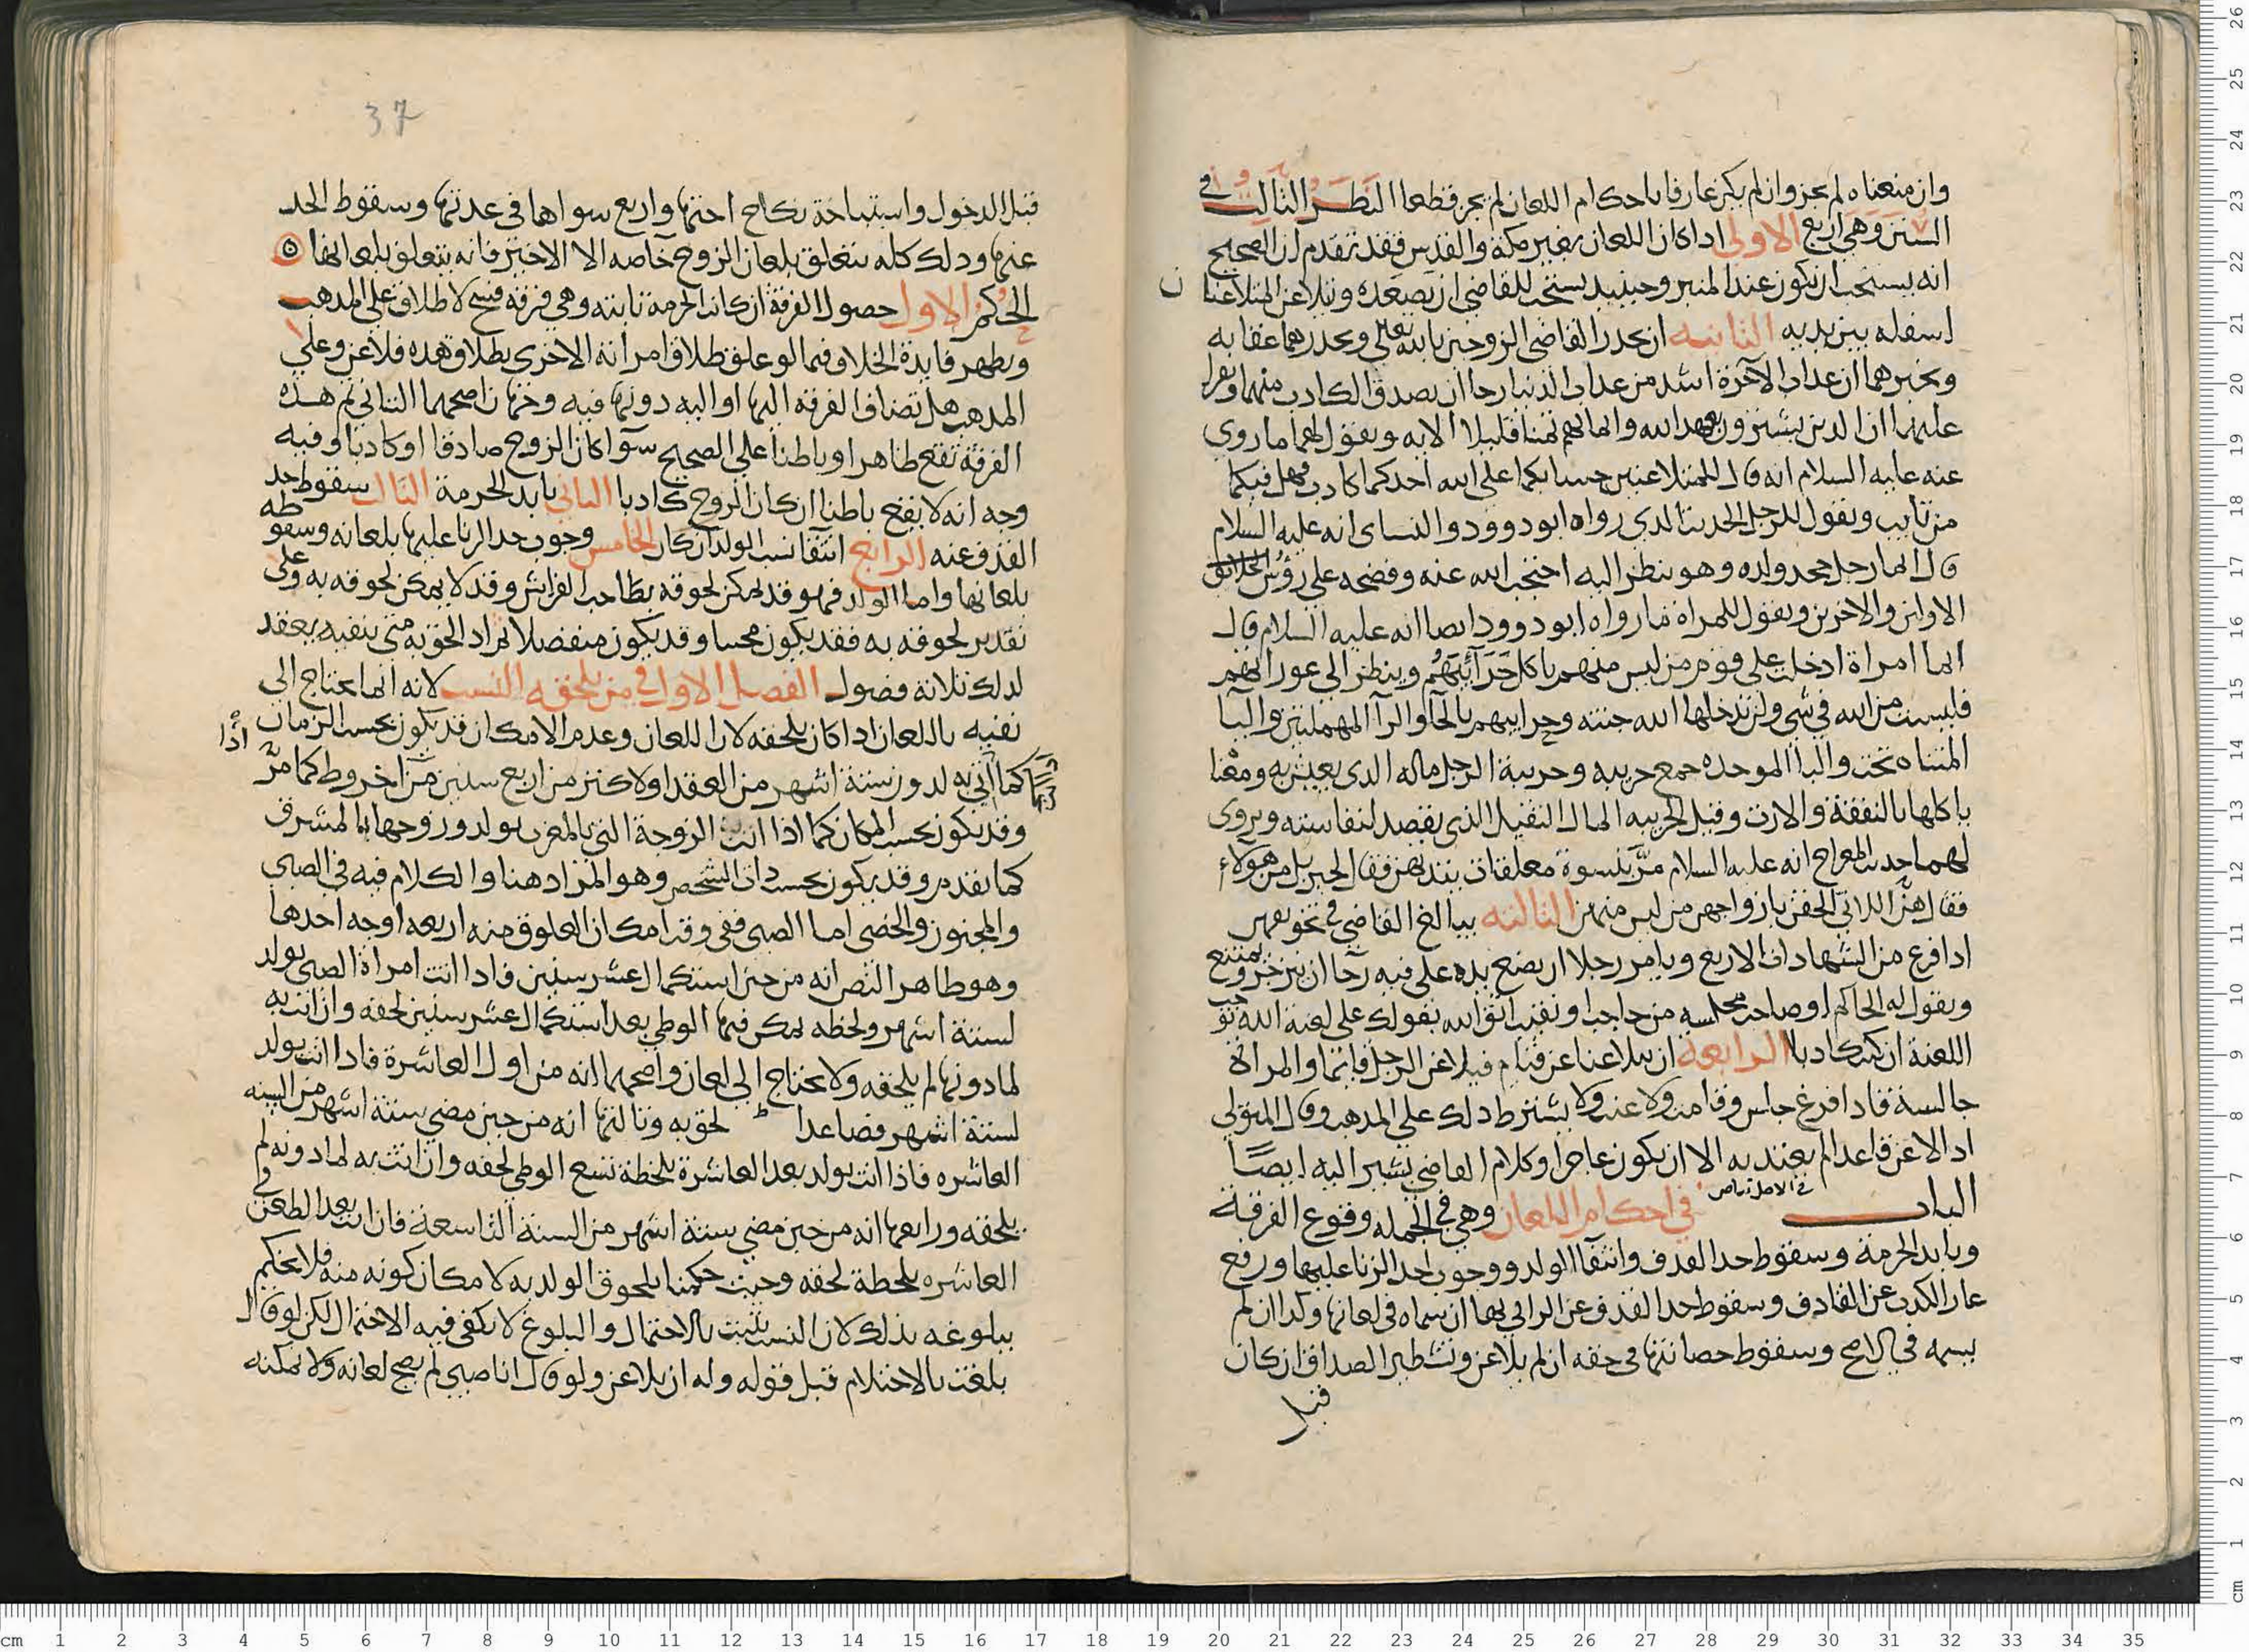 وان منعناه لم يجز وان لم يكن عارفا باحكام اللعان لم يجز قطعا النظر الثالث في
السنن وهي اربع الاولى اذا كان اللعان بغير مكة والقدس فقد تقدم ان الصحيح
انه يستحب ان يكون عند المنبر وحينيذ يستحب للقاضي ان يصعده ويتلاعن المتلاعنان
اسفله بين يديه الثانيه ان يحذر القاضي الزوجين بالله تعالى ويحذرهما عقابه
ويخبرهما ان عذاب الآخرة اشد من عذاب الدنيا رجا ان يصدق الكاذب منهما ويقرا
عليهما ان الذين يشترون بعهد الله وايمانهم ثمنا قليلا الايه ويقول لهما ما روي
عنه عليه السلام انه قال للمتلاعنين حسابكما على الله احدكما كاذب فهل فيكما
من تايب ويقول للرجل الحديث الذي رواه ابو داوود والنساي انه عليه السلام
قال ايما رجل جحد ولده وهو ينظر اليه احتجب الله عنه وفضحه على رؤس الخلائق
الاولين والاخرين ويقول للمراة ما رواه ابو داوود ايضا انه عليه السلام قال
ايما امراة ادخلت على قوم من ليس منهم ياكل حرائبهم وينظر الى عوراتهم
فليست من الله في شي ولن يدخلها الله جنته وحرايبهم بالحا والرا المهملتين واليا
المثناه تحت والبا الموحده جمع حريبه وحريبة الرجل ماله الذي يعيش به ومعنا
ياكلها بالنفقة والارث وقيل الحريبه المال الثقيل الذي يقصد لنفاسته ويروى
لهما حديث المعراج انه عليه السلام مر بنسوة معلقات بثديهن فقال لجبريل من هولاء
فقال هن اللاتي الحقن بازواجهن من ليس منهن الثالثه يبالغ القاضي في تخويفهن
اذا فرغ من الشهادات الاربع ويامر رجلا ان يضع يده على فيه رجا ان ينزجر ويمتنع
ويقول له الحاكم او صاحب مجلسه من حاجب او نقيب اتق الله بقولك علي لعنة الله توجب
اللعنة ان كنت كاذبا الرابعة ان يتلاعنا عن قيام فيلاعن الرجل قايما والمراة
جالسة فاذا فرغ جلس وقامت ولاعنت ولا يشترط ذلك على المذهب وقال المتولي
اذا لاعن قاعدا لم يعتد به الا ان يكون عاجزا وكلام القاضي يشير اليه ايضا
الباب في الاصل بياض في احكام اللعان وهي في الجمله وقوع الفرقة
وتابد الحرمة وسقوط حد القذف وانتفا الولد ووجوب حد الزنا عليها ورفع
عار الكذب عن القاذف وسقوط حد القذف عن الزاني بها ان سماه في لعانه وكذا ان لم
يسمه في الاصح وسقوط حصانتها في حقه ان لم يلاعن وتشطير الصداق ان كان
قبل
37
قبل الدخول واستباحة نكاح اختها واربع سواها في عدتها وسقوط الحد
عنها وذلك كله يتعلق بلعان الزوج خاصه الا الاخير فانه يتعلق بلعانها
الحكم الاول حصول الفرقة ان كانت الحرمة ثابته وهي فرقة فسخ لا طلاق على المذهب
ويظهر فايدة الخلاف فيما لو علق طلاق امراته الاخرى بطلاق هذه فلاعن وعلى
المذهب هل تضاف الفرقة اليها او اليه دونها فيه وجهان اصحهما الثاني ثم هذه
الفرقة تقع ظاهرا وباطنا على الصحيح سوآ كان الزوج صادقا او كاذبا وفيه
وجه انه لا يقع باطنا ان كان الزوج كاذبا الثاني تابد الحرمة الثالث سقوط حد
القذف عنه الرابع انتفا نسب الولد ان كان الخامس وجوب حد الزنا عليها بلعانه وسقوطه
بلعانها واما الولد فهو قد يمكن لحوقه بصاحب الفراش وقد لا يمكن لحوقه به وعلى
تقدير لحوقه به فقد يكون مجنينا وقد يكون منفصلا يراد الحقوبه متى ينفيه يعقد
لذلك ثلاثة فصول الفصل الاول في من يلحقه النسب لانه انما يحتاج الى
نفيه باللعان اذا كان يلحقه لان اللعان وعدم الامكان قد يكون بحسب الزمان
كما اتي به لدون ستة اشهر من العقد او لاكثر من اربع سنين من اخر وط كما مر اذا
وقد يكون بحسب المكان كما اذا اتت الزوجة التي بالمغرب بولد وزوجها بالمشرق
كما تقدم وقد يكون بحسب ذات الشخص وهو المراد هنا والكلام فيه في الصبي
والمجنون والخصي اما الصبي ففي وقت امكان العلوق منه اربعه اوجه احدها
وهو ظاهر النص انه من حين استكمال عشر سنين فاذا اتت امراة الصبي بولد
لستة اشهر ولحظه يمكن فيها الوطي بعد استكمال عشر سنين لحقه وان اتت به
لما دونها لم يلحقه ولا يحتاج الى لعان واصحهما انه من اول العاشرة فاذا اتت بولد
لستة اشهر فصاعدا لحق به وثالثها انه من حين مضي ستة اشهر من السنه
العاشره فاذا اتت بولد بعد العاشرة بلحظة تسع الوطي لحقه وان اتت به لما دونه لم
يلحقه ورابعها انه من حين مضي ستة اشهر من السنة التاسعة فان اتت بعد الطعن في
العاشره بلحظة لحقه وحيث حكمنا بلحوق الولد به لامكان كونه منه فلا يحكم
ببلوغه بذلك لان النسب يثبت بالاحتمال والبلوغ لا يكفي فيه الاحتمال لكن لو قال
بلغت بالاحتلام قبل قوله وله ان يلاعن ولو قال انا صبي لم يصح لعانه ولا يمكنه